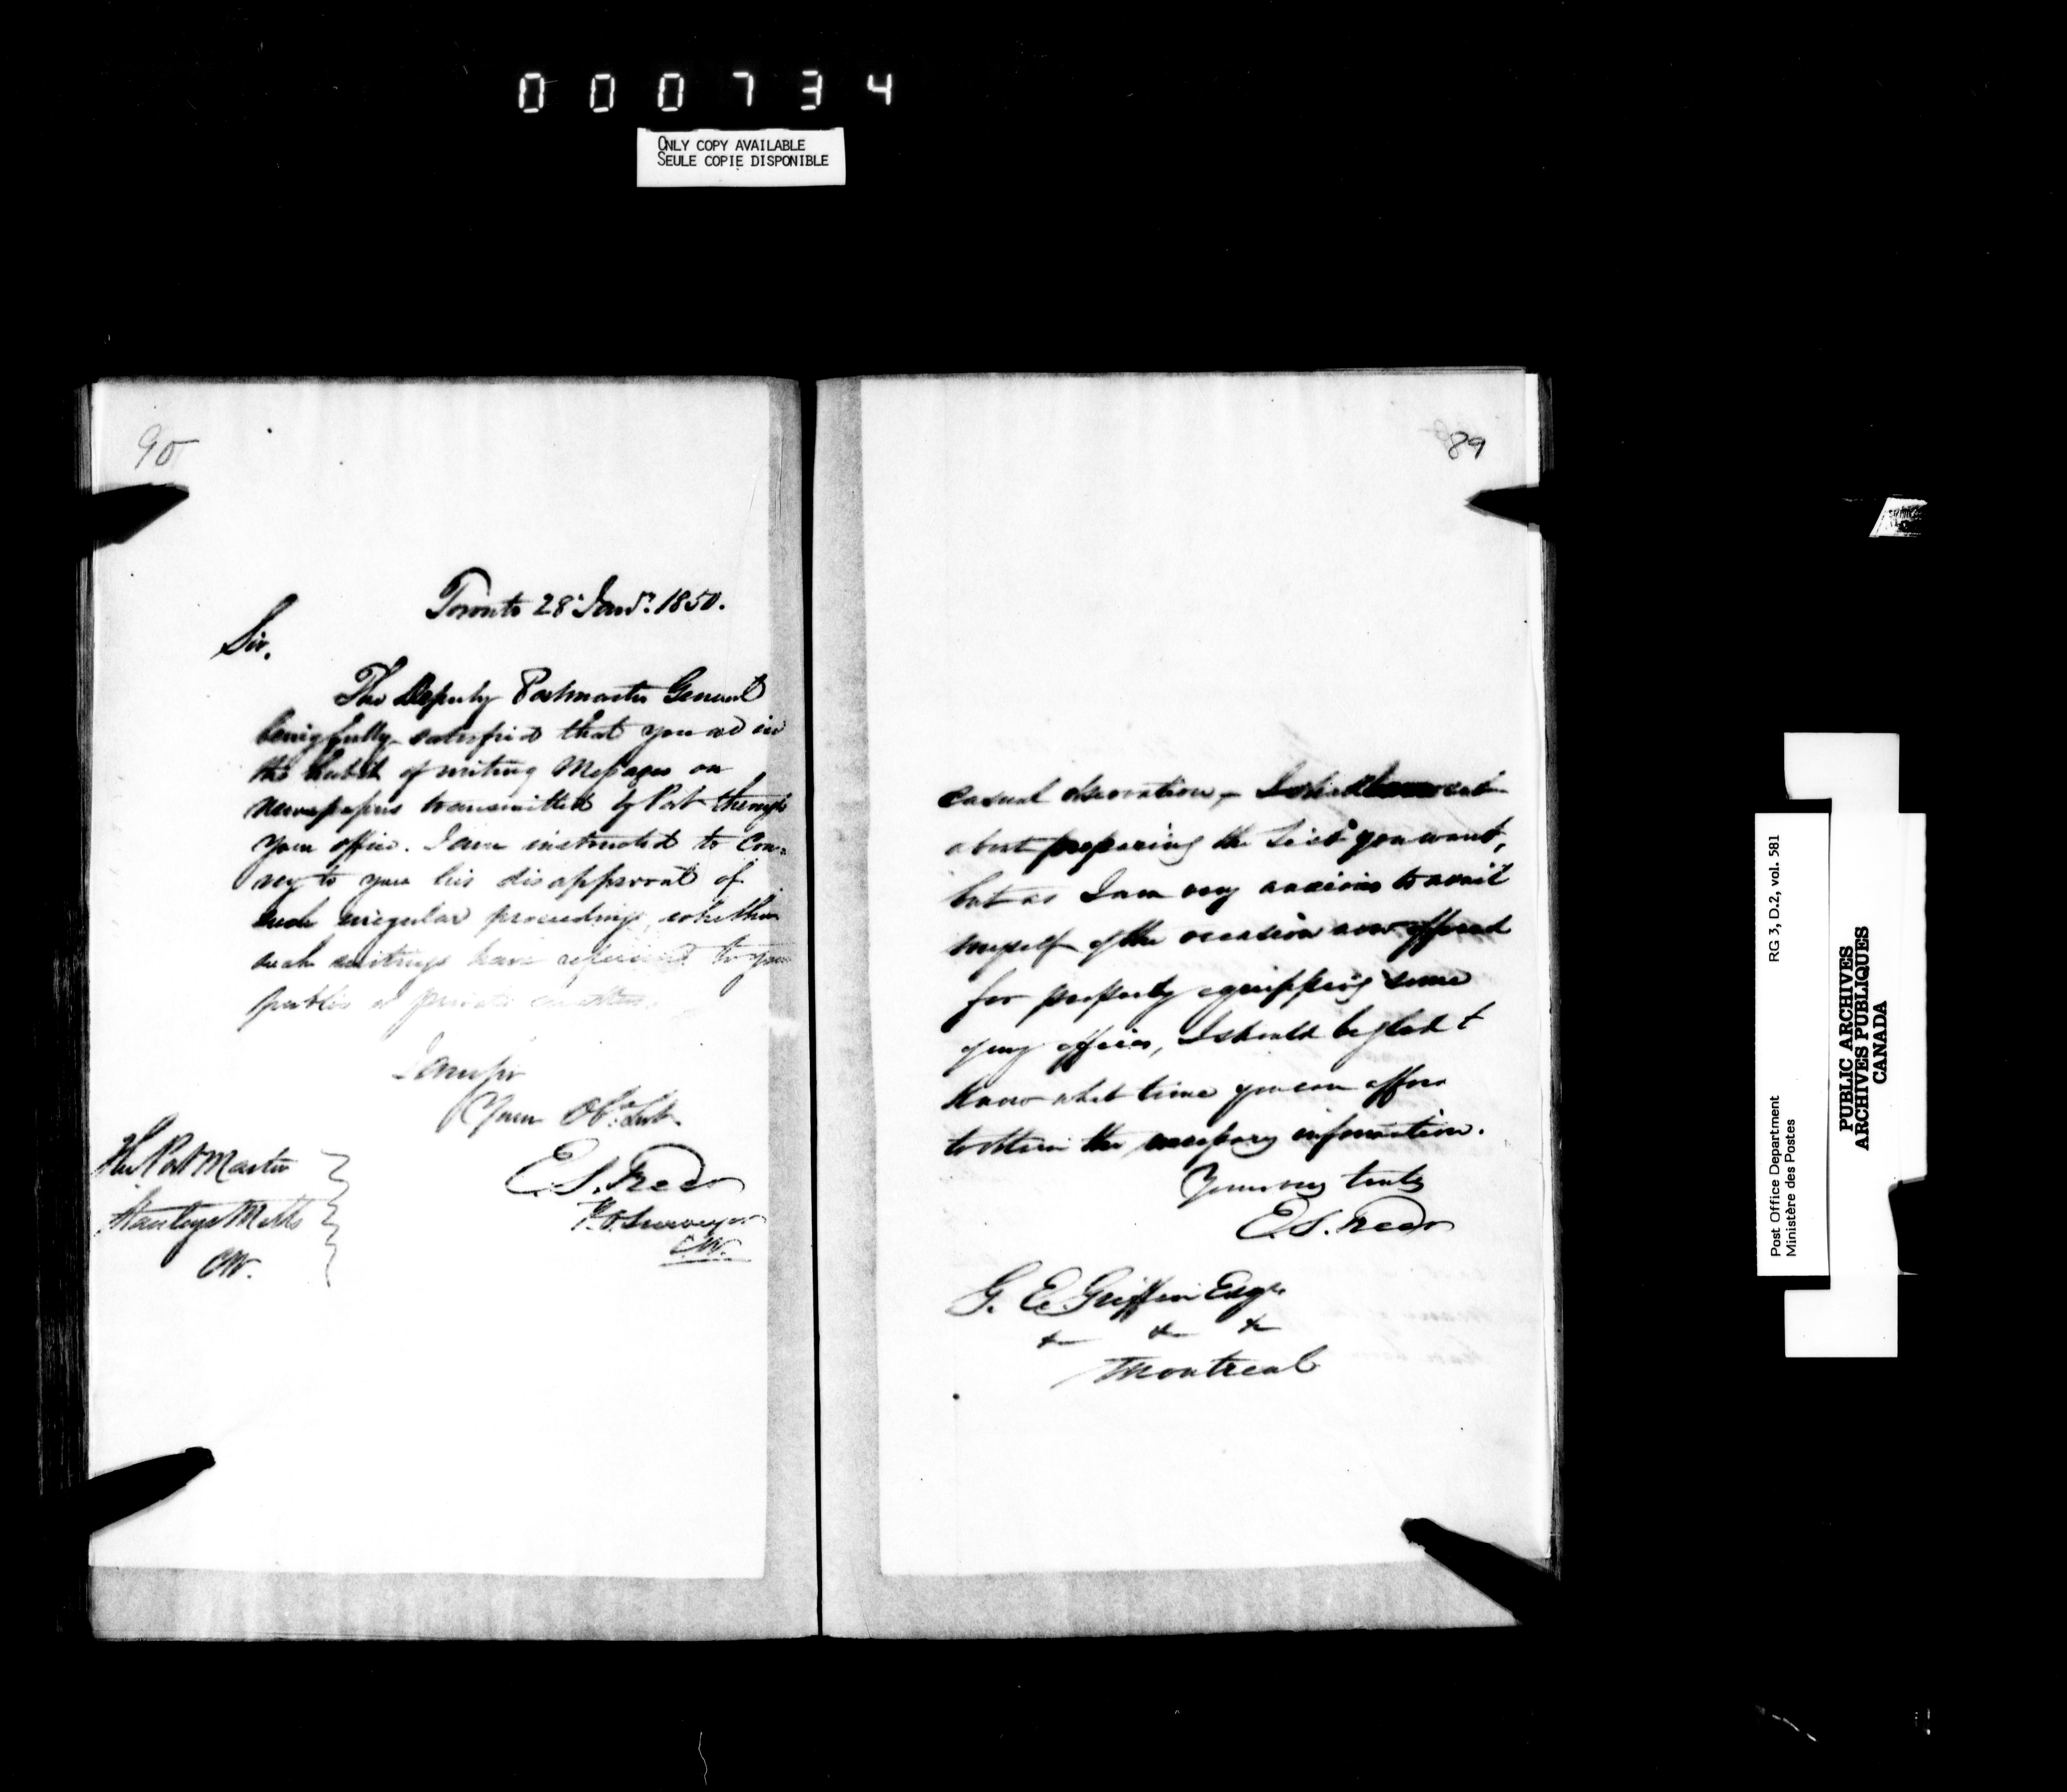 000734
ONLY COPY AVAILABLE
SEULE COPIE DISPONIBLE
90
Toronto 28 Jany. 1850.
Sir,
The Deputy Postmaster General
being fully satisfied that you are in
the habit of writing Messages on
Newspapers transmitted by Post through
your office. I am instructed to Con-
vey to you his disapproval of
such irregular proceedings, whether
such writings have reference to you
public or private matters.
I am Sir
Your Obt. Servt.
E. S. Freer
P. O. Surveyor
C.W.
The Post Master
Stanleys Mills
CW.
89
casual observation, - I shall
about preparing the List you want,
but as I am very anxious to avail
myself of the occasion now offered
for properly equipping some
of my offices, I should be glad t
know what time you can afford
to obtain the necessary information.
Yours very truly
E. S. Freer
G. E. Griffin Esqr.
& & &
Montreal
Post Office Department RG 3, D.2, vol. 581
Ministère des Postes
PUBLIC ARCHIVES
ARCHIVES PUBLIQUES
CANADA